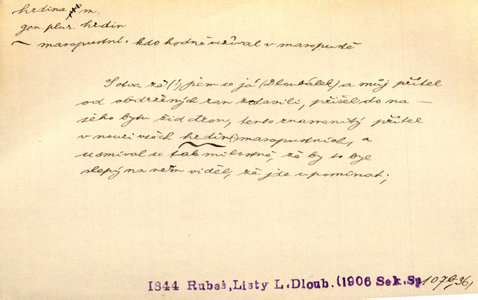 hrdina m.
gen. plur. hrdin
~ masopustní: kdo hodně užíval v masopustě
Sotva že (!) jsem se já (Dloubálek) a můj přítel
od obdržených ran zotavili, přišel do na-
šeho bytu žid dron, tento znamenitý přítel
v nouzi všech hrdin masopustních, a
usmíval se tak milostně, že by to byl
slepý na něm viděl, že jde upomínat;
1844 Rubeš, Listy L. Dloub. (1906 Sek. Sp. 1079, 36)